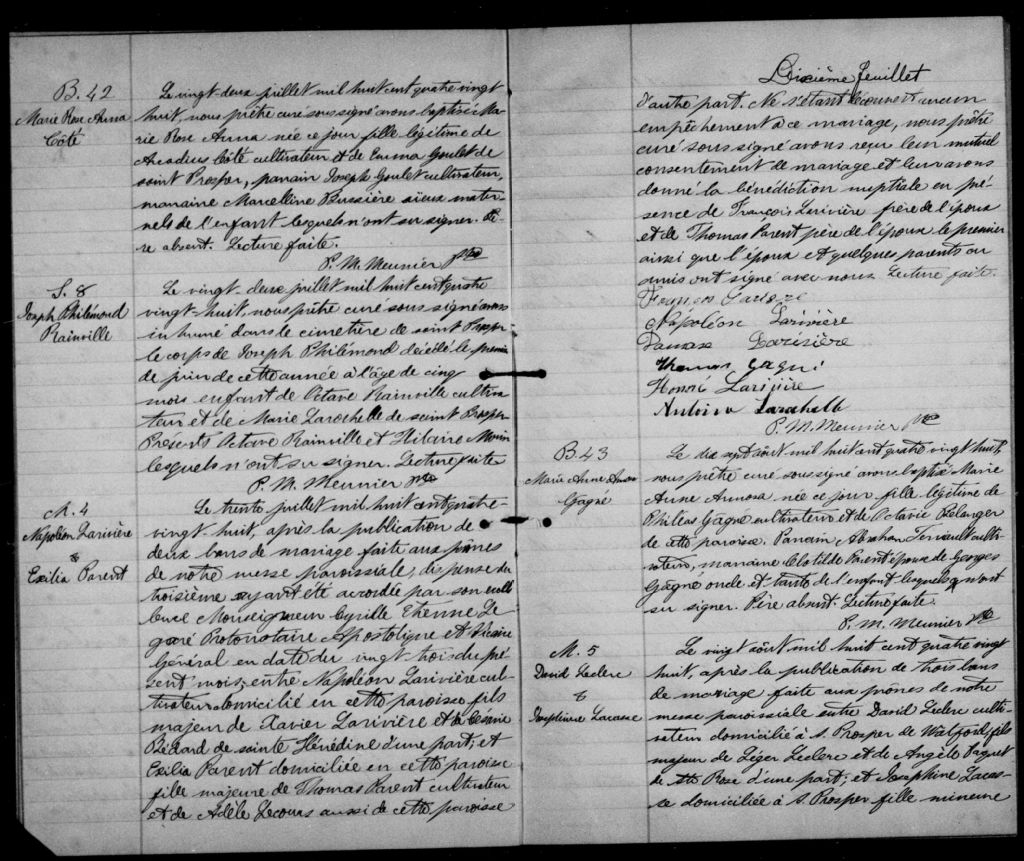 B. 42
Marie Rose Anna
Côté
Le vingt-deux juillet mil huit cent quatre vingt
huit, nous prêtre curé soussigné avons baptisé Ma-
rie Rose Anna née ce jour fille légitime de
Arcadius Côté cultivateur et de Emma Goulet de
saint Prosper, parrain Joseph Goulet cultivateur,
marraine Marcelline Bussière aïeux mater-
nels de l'enfant lesquels n'ont su signer. Pè-
re absent. Lecture faite.
P. M. Meunier Ptre
S. 8
Joseph Philémond
Rainville
Le vingt deux juillet mil huit cent quatre
vingt-huit, nous prêtre curé soussigné avons
inhumé dans le cimetière de saint Prosper
le corps de Joseph Philémond décédé le premier
de juin de cette année à l'âge de cinq
mois enfant de Octave Rainville cultiva
teur et de Marie Larochelle de saint Prosper
Présents Octave Rainville et Hilaire Morin
lesquels n'ont su signer. Lecture faite
P. M. Meunier Ptre
M. 4
Napoléon Larivière
&
Exilia Parent
Le trente juillet mil huit cent quatre-
vingt-huit, après la publication de
deux bans de mariage faite aux prônes
de notre messe paroissiale, dispense du
troisième ayant été accordée par son excel
lence Monseigneur Cyrille Etienne Le
garé Protonotaire Apostolique et Vicaire
Général en date du vingt trois du pré-
sent mois, entre Napoléon Larivière cul-
tivateur domicilié en cette paroisse fils
majeur de Xavier Larivière et de Césarie
Bédard de sainte Hénédine d'une part; et
Exilia Parent domiciliée en cette paroisse
fille majeure de Thomas Parent cultivateur
et de Adèle Lecours aussi de cette paroisse
Dixième feuillet
d'autre part. Ne s'étant découvert aucun
empêchement à ce mariage, nous prêtre
curé soussigné avons reçu leur mutuel
consentement de mariage et leur avons
donné la bénédiction nuptiale en pré-
sence de François Larivière frère de l'époux
et de Thomas Parent père de l'épouse le premier
ainsi que l'époux et quelques parents ou
amis ont signé avec nous Lecture faite.
Napoléon Larivière
Larivière
Thomas Gagné
Henri Larivière
Larochelle
P. M. Meunier Ptre
B. 43
Marie Anne
Gagné
Le dix sept août mil huit cent quatre vingt huit,
nous prêtre curé soussigné avons baptisé Marie
Anne née ce jour fille légitime de
Philéas Gagné cultivateur et de Octavie Bélanger
de cette paroisse. Parrain Abraham culti-
vateur, marraine Clotilde Parent épouse de Georges
Gagné oncle et tante de l'enfant lesquels n'ont
su signer. Père absent. Lecture faite.
P. M. Meunier Ptre
M. 5
David Leclerc
&
Joséphine Lacasse
Le vingt août mil huit cent quatre vingt
huit, après la publication de trois bans
de mariage faite aux prônes de notre
messe paroissiale entre David Leclerc culti-
vateur domicilié à S. Prosper de Watford, fils
majeur de Léger Leclerc et de Angèle Paquet
de Ste Rose d'une part; et Joséphine Lacas-
se domiciliée à S. Prosper fille mineure